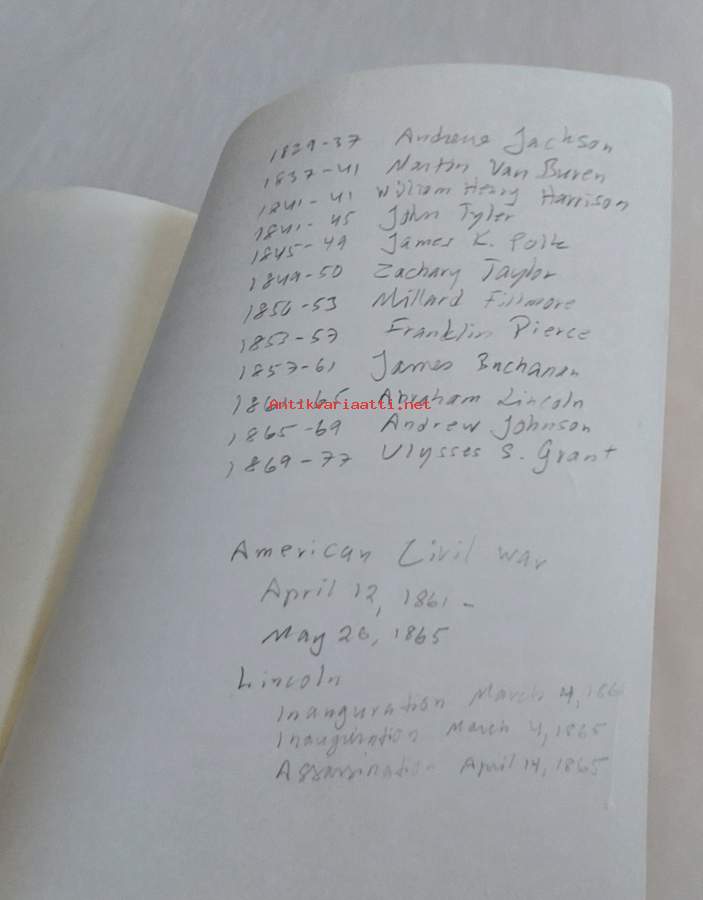 1829-37 Andrew Jackson
1837-41 Martin Van Buren
1841-41 William Henry Harrison
1841-45 John Tyler
1845-49 James K. Polk
1849-50 Zachary Taylor
1850-53 Millard Fillmore
1853-57 Franklin Pierce
1857-61 James Buchanan
1861-65 Abraham Lincoln
Antikvariaatti.net
1865-69 Andrew Johnson
1869-77 Ulysses S. Grant
American Civil War
April 12, 1861 -
May 26, 1865
Lincoln
Inauguration March 4, 186
Inauguration March 4, 1865
Assassination April 14, 1865